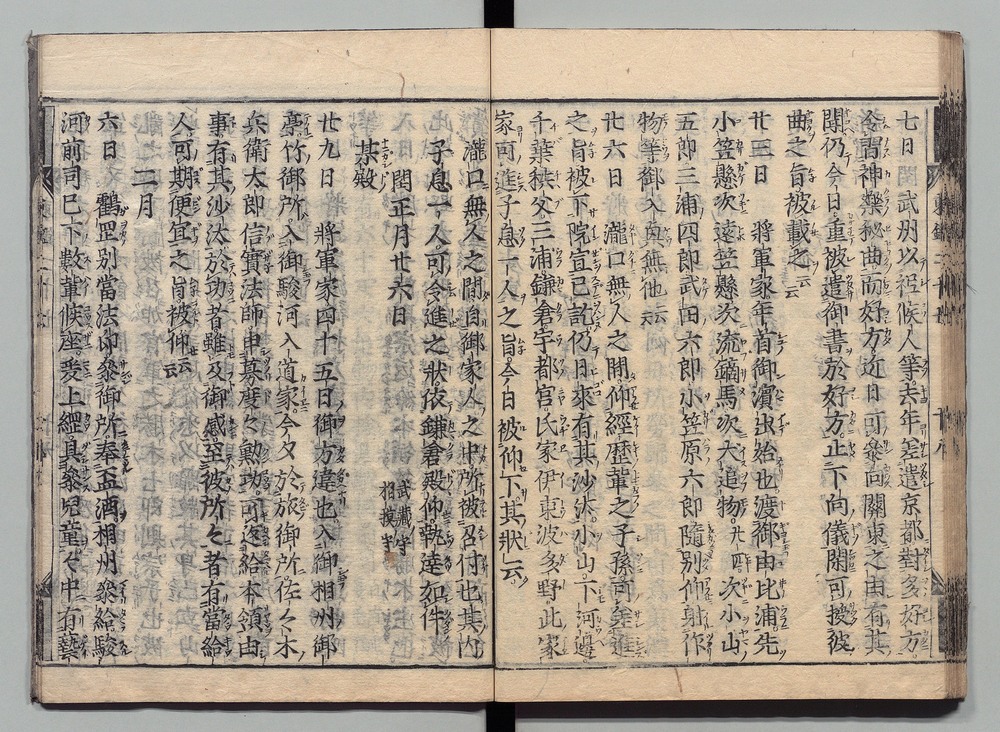 七日　武州以祗候人等去年差遣京都對多好方
令習神樂秘曲而好方近日可參向關東之由有其
聞仍今日重被遣御書於好方止下向儀閑可授彼
曲之旨被載之云云
廿三日　將軍家年首御濱出始也渡御由比浦先
小笠懸次遠笠懸次流鏑馬次犬追物廿疋次小山
五郎三浦四郎武田六郎小笠原六郎隨別仰射作
物等御入興無他云云
廿六日　瀧口無人之間仰經歷輩之子孫可差進
之旨被下院宣已訖仍日來有其沙汰小山下河邊
千葉秩父三浦鎌倉宇都宮氏家伊東波多野此家
家可進子息一人之旨今日被仰下其狀云
瀧口無人之間自御家人之中所被召付也其內
子息一人可令進之狀依鎌倉殿仰執達如件
閏正月廿六日　武藏守
相摸守
某殿
廿九日　將軍家四十五日御方違也入御相州御
亭竹御所入御駿河入道家今夕於旅御所佐々木
兵衛太郎信實法師申募度々勳功可返給本領由
事有其沙汰於功者雖及御感至彼所々者有當給
人可期便宜之旨被仰云云
二月
六日　鶴罡別當法印參御所奉盃酒相州參給駿
河前司已下數輩候座爰上綱具參兒童之中有藝